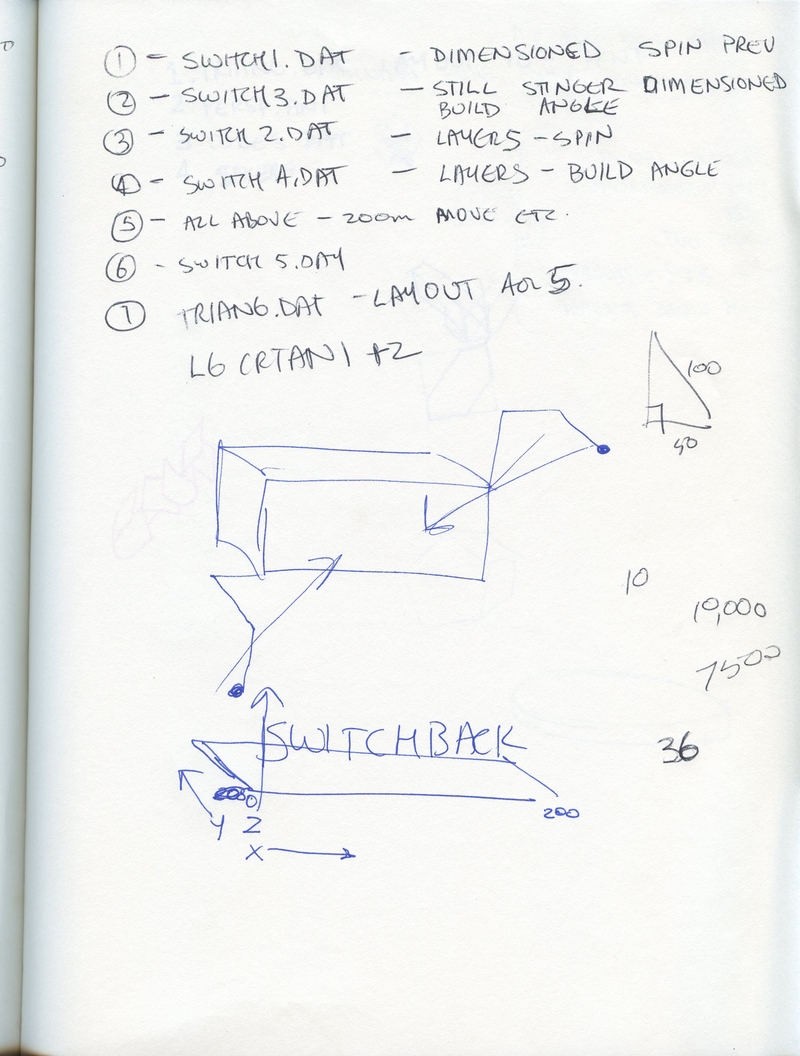 ① - SWITCH1.DAT - DIMENSIONED SPIN PREV
② - SWITCH3.DAT - STILL STINGER DIMENSIONED
BUILD ANGLE
③ - SWITCH2.DAT - LAYERS - SPIN
④ - SWITCH4.DAT - LAYERS - BUILD ANGLE
⑤ - ALL ABOVE - ZOOM MOVE ETC.
⑥ - SWITCH 5.DAY
⑦ TRIANG.DAT - LAYOUT FOR 5.
100
50
10
10,000
7500
SWITCHBACK
36
0
200
Y Z
X